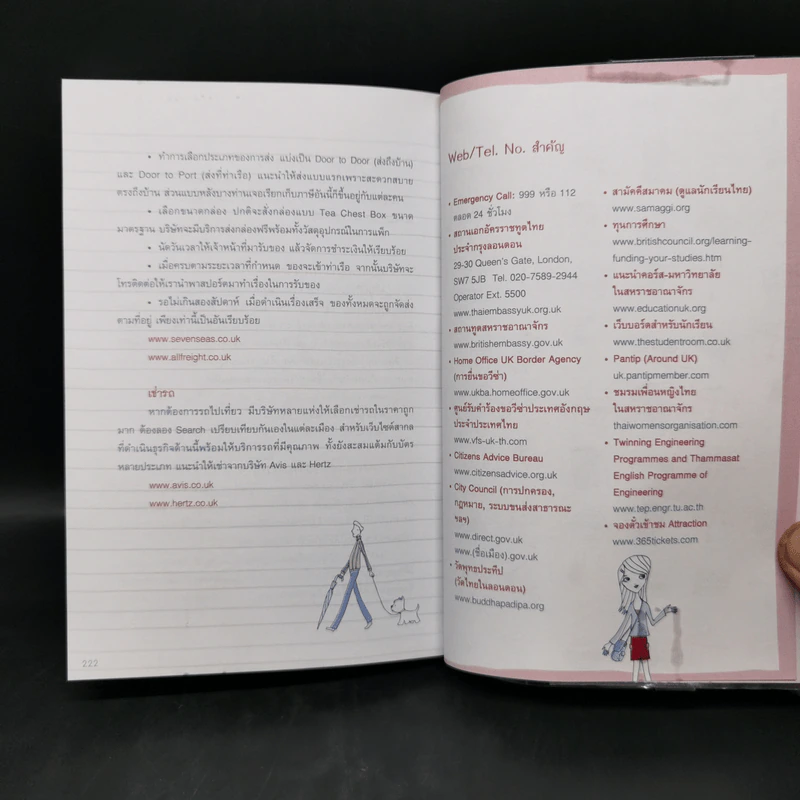 • ทำการเลือกประเภทของการส่ง แบ่งเป็น Door to Door (ส่งถึงบ้าน)
และ Door to Port (ส่งที่ท่าเรือ) แนะนำให้ส่งแบบแรกเพราะสะดวกสบาย
ตรงถึงบ้าน ส่วนแบบหลังบางท่านเจอเรียกเก็บภาษีอันนี้ก็ขึ้นอยู่กับแต่ละคน
• เลือกขนาดกล่อง ปกติจะสั่งกล่องแบบ Tea Chest Box ขนาด
มาตรฐาน บริษัทจะมีบริการส่งกล่องฟรีพร้อมทั้งวัสดุอุปกรณ์ในการแพ็ก
• นัดวันเวลาให้เจ้าหน้าที่มารับของ แล้วจัดการชำระเงินให้เรียบร้อย
• เมื่อครบตามระยะเวลาที่กำหนด ของจะเข้าท่าเรือ จากนั้นบริษัทจะ
โทรติดต่อให้เรานำพาสปอร์ตมาทำเรื่องในการรับของ
• รอไม่เกินสองสัปดาห์ เมื่อดำเนินเรื่องเสร็จ ของทั้งหมดจะถูกจัดส่ง
ตามที่อยู่ เพียงเท่านี้เป็นอันเรียบร้อย
www.sevenseas.co.uk
www.allfreight.co.uk
เช่ารถ
หากต้องการรถไปเที่ยว มีบริษัทหลายแห่งให้เลือกเช่ารถในราคาถูก
มาก ต้องลอง Search เปรียบเทียบกันเองในแต่ละเมือง สำหรับเว็บไซต์สากล
ที่ดำเนินธุรกิจด้านนี้พร้อมให้บริการรถที่มีคุณภาพ ทั้งยังสะสมแต้มกับบัตร
หลายประเภท แนะนำให้เช่าจากบริษัท Avis และ Hertz
www.avis.co.uk
www.hertz.co.uk
222
Web/Tel. No. สำคัญ
• Emergency Call: 999 หรือ 112
ตลอด 24 ชั่วโมง
• สถานเอกอัครราชทูตไทย
ประจำกรุงลอนดอน
29-30 Queen's Gate, London,
SW7 5JB Tel. 020-7589-2944
Operator Ext. 5500
www.thaiembassyuk.org.uk
• สถานทูตสหราชอาณาจักร
www.britishembassy.gov.uk
• Home Office UK Border Agency
(การยื่นขอวีซ่า)
www.ukba.homeoffice.gov.uk
• ศูนย์รับคำร้องขอวีซ่าประเทศอังกฤษ
ประจำประเทศไทย
www.vfs-uk-th.com
• Citizens Advice Bureau
www.citizensadvice.org.uk
• City Council (การปกครอง,
กฎหมาย, ระบบขนส่งสาธารณะ
ฯลฯ)
www.direct.gov.uk
www.(ชื่อเมือง).gov.uk
• วัดพุทธปทีป
(วัดไทยในลอนดอน)
www.buddhapadipa.org
• สามัคคีสมาคม (ดูแลนักเรียนไทย)
www.samaggi.org
• ทุนการศึกษา
www.britishcouncil.org/learning-
funding-your-studies.htm
• แนะนำคอร์ส-มหาวิทยาลัย
ในสหราชอาณาจักร
www.educationuk.org
• เว็บบอร์ดสำหรับนักเรียน
www.thestudentroom.co.uk
• Pantip (Around UK)
uk.pantipmember.com
• ชมรมเพื่อนหญิงไทย
ในสหราชอาณาจักร
thaiwomensorganisation.com
• Twinning Engineering
Programmes and Thammasat
English Programme of
Engineering
www.tep.engr.tu.ac.th
• จองตั๋วเข้าชม Attraction
www.365tickets.com